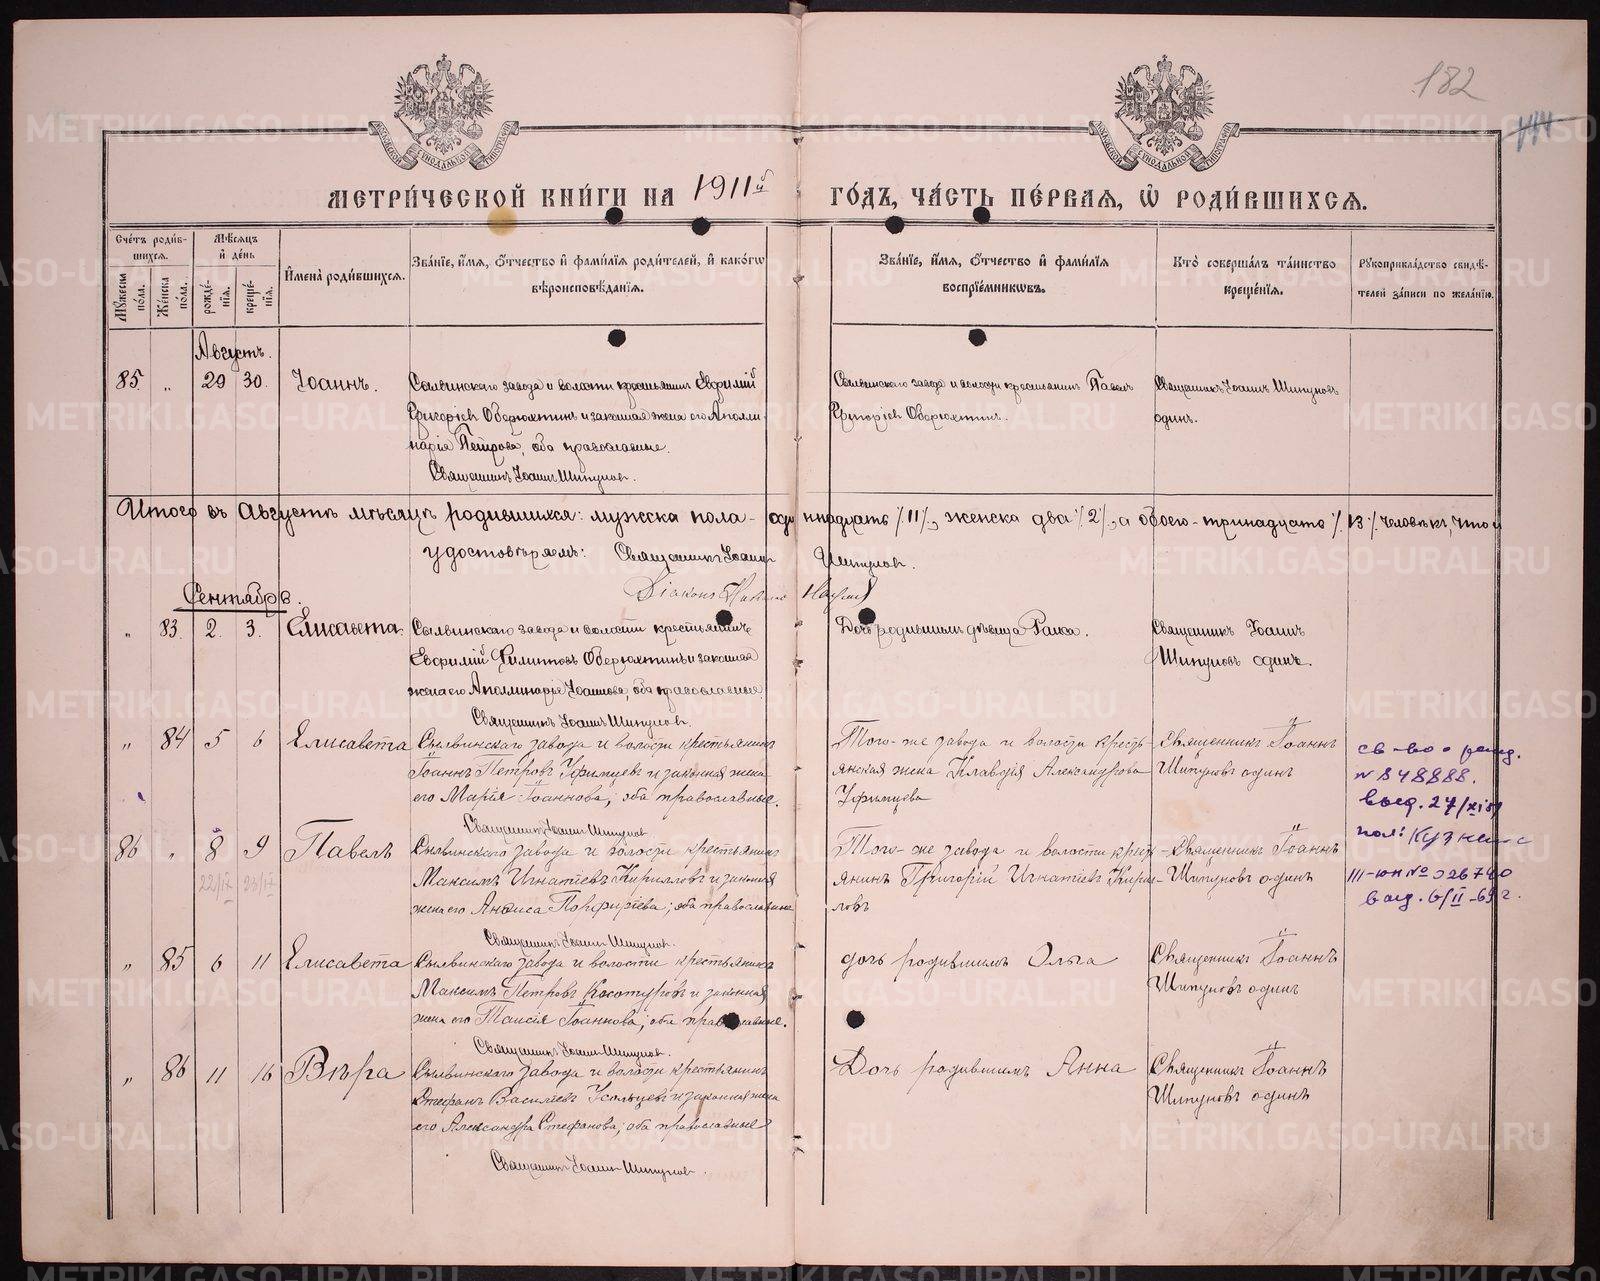 182
МЕТРИ́ЧЕСКОЙ КНИ́ГИ НА 1911й ГО́ДЪ, ЧА́СТЬ ПЕ́РВАЯ, Ѡ РОДИ́ВШИХСЯ.
Сче́тъ роди́вшихся.
Мꙋ́жеска по́ла.
Же́нска по́ла.
Мѣ́сяцъ и҆ де́нь
рожде́нїя.
креще́нїя.
И҆мена̀ роди́вшихся.
Зва́нїе, и҆́мя, ѻ҆́тчество и҆ фами́лїя роди́телей, и҆ како́гѡ вѣроисповѣ́данїя.
Зва́нїе, и҆́мя, ѻ҆́тчество и҆ фами́лїя воспрїе́мникѡвъ.
Кто̀ соверша́лъ та́инство креще́нїя.
Рꙋкоприкла́дство свидѣ́телей за́писи по жела́нїю.
Августъ.
85 „ 29 30. Іоаннъ.
Сылвинскаго завода и волости крестьянинъ Евфимій
Григоріевъ Оберюхтинъ и законная жена его Аполли-
нарія Петрова, оба православные.
Священникъ Іоаннъ Шипуловъ.
Сылвинскаго завода и волости крестьянинъ Павелъ
Григоріевъ Оберюхтинъ.
Священникъ Іоаннъ Шипуловъ
одинъ.
Итого въ Августѣ мѣсяцѣ родившихся: мужеска пола - одиннадцать /.11/., женска два /.2/., а обоего - тринадцать /.13/. человѣкъ, что и
удостовѣряемъ: Священникъ Іоаннъ Шипуловъ.
Діаконъ
Сентябрь.
„ 83. 2. 3. Елисавета.
Сылвинскаго завода и волости крестьянинъ
Евфимій Филиповъ Оберюхтинъ и законная
жена его Аполлинарія Іоаннова, оба православные
Священникъ Іоаннъ Шипуловъ.
Дочь родившимъ дѣвица Раиса.
Священникъ Іоаннъ
Шипуловъ одинъ.
„ 84 5 6 Елисавета
Сылвинскаго завода и волости крестьянинъ
Іоаннъ Петровъ Уфимцевъ и законная жена
его Марія Іоаннова; оба православные.
Священникъ Іоаннъ Шипуловъ
Того-же завода и волости кресть-
янская жена Клавдія Александрова
Уфимцева
Священникъ Іоаннъ
Шипуловъ одинъ
св-во о рожд.
№ 848888.
выд. 27/XI
86 „ 8 9 Павелъ
22/IX 23/IX
Сылвинскаго завода и волости крестьянинъ
Максимъ Игнатіевъ Кирилловъ и законная
жена его Анфиса Порфиріева; оба православные
Священникъ Іоаннъ Шипуловъ.
Того-же завода и волости крест-
янинъ Григорій Игнатіевъ Кирил-
ловъ
Священникъ Іоаннъ
Шипуловъ одинъ
III-юн № 026740
выд. 6/II-69г.
„ 85 6 11 Елисавета
Сылвинскаго завода и волости крестьянинъ
Максимъ Петровъ Косотуровъ и законная
жена его Таисія Іоаннова; оба православные.
Священникъ Іоаннъ Шипуловъ.
дочь родившимъ Ольга
Священникъ Іоаннъ
Шипуловъ одинъ
„ 86 11 16 Вѣра
Сылвинскаго завода и волости крестьянинъ
Стефанъ Василіевъ Усольцевъ и законная жена
его Александра Стефанова; оба православные
Священникъ Іоаннъ Шипуловъ.
Дочь родившимъ Анна
Священникъ Іоаннъ
Шипуловъ одинъ
METRIKI.GASO-URAL.RU